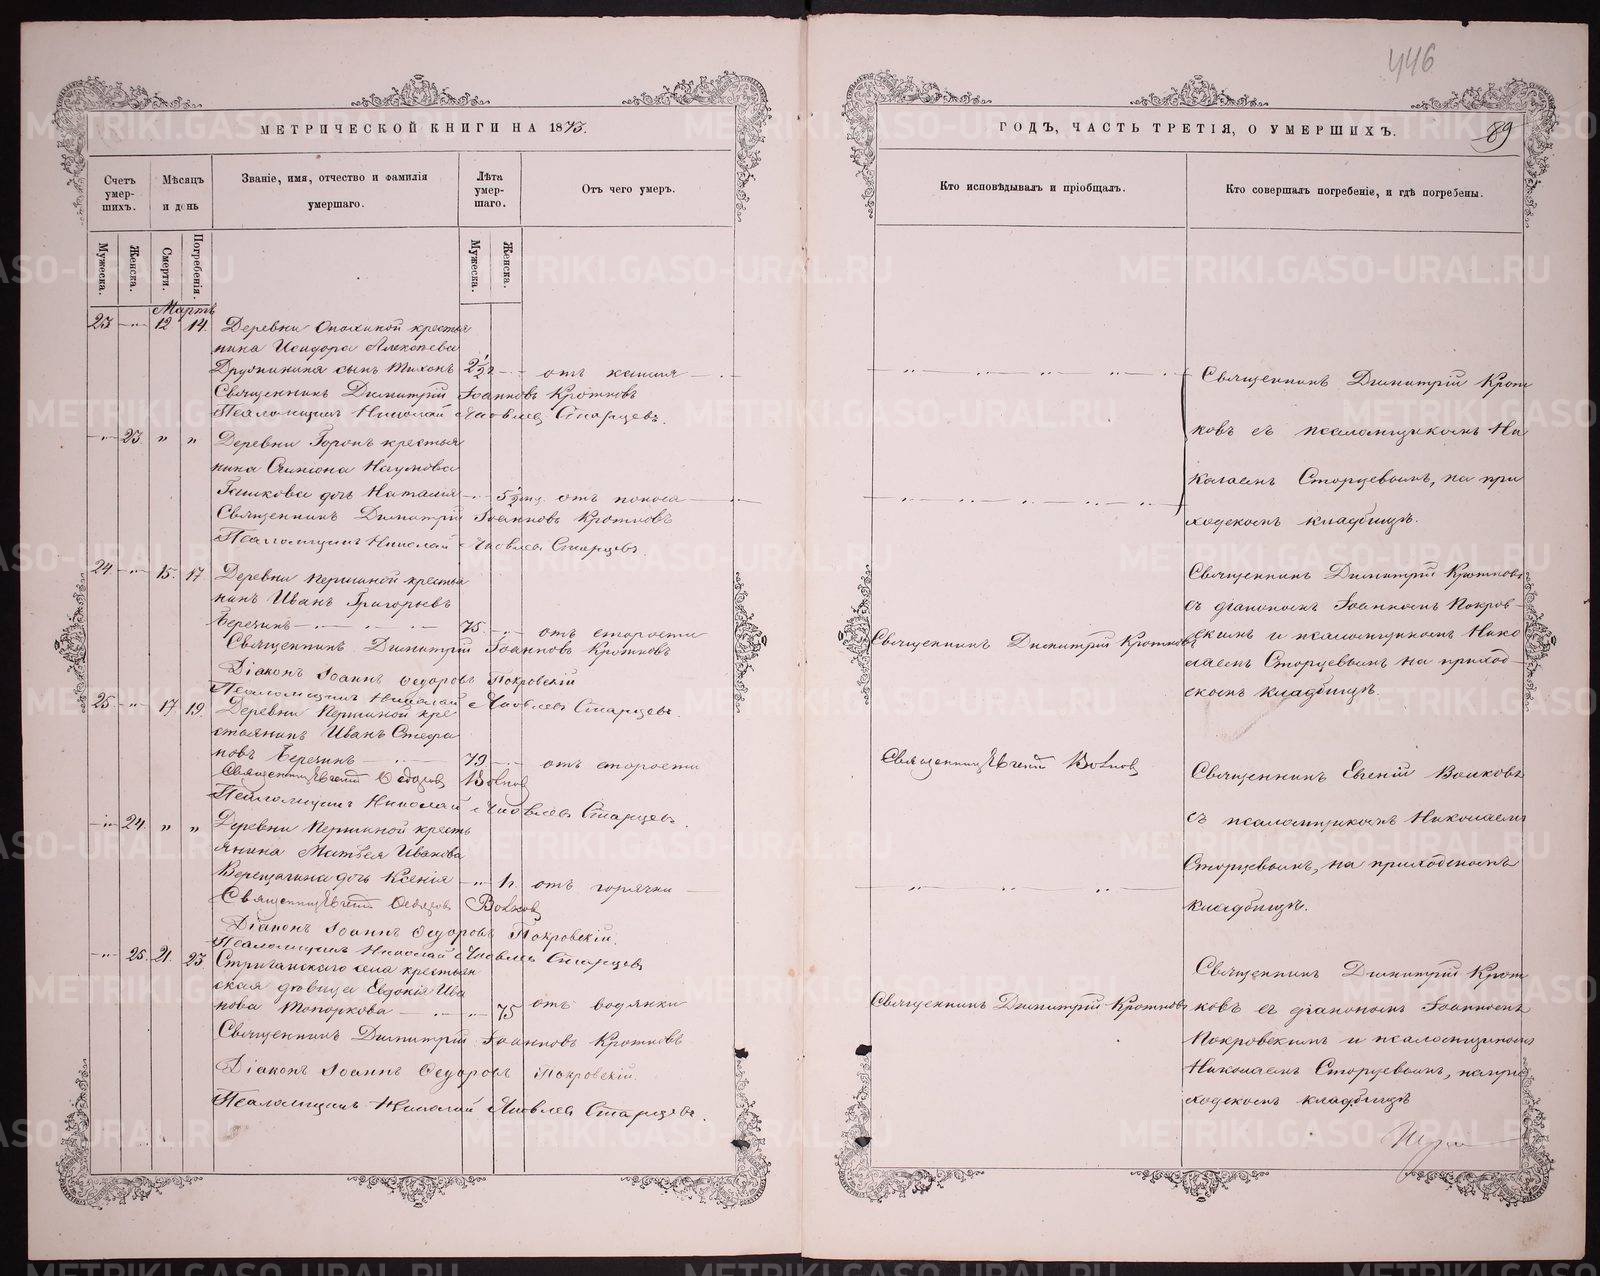 446
МЕТРИЧЕСКОЙ КНИГИ НА 1873.
Счетъ умер-шихъ.
Мѣсяцъ и день
Званіе, имя, отчество и фамилія умершаго.
Лѣта умер-шаго.
Отъ чего умеръ.
Мужеска.
Женска.
Смерти.
Погребенія.
Мужеска.
Женска.
Мартъ
23 — „ — 12 14. Деревни крестья
нина Исидора Алексѣева
сынъ Тихонъ 2 1/2 г — от кашля
Священникъ Димитрій Іоанновъ Кротковъ
Псаломщикъ Николай Яковлев Старцевъ.
— „ — 23. „ „ Деревни крестья
нина Симеона Наумова
дочь Наталія — 5 1/2 отъ поноса
Священникъ Димитрій Іоанновъ Кротковъ
Псаломщикъ Николай Яковлев Старцевъ.
24. — „ — 15. 17. Деревни Першиной крестья
нинъ Иванъ Григорьевъ
Березинъ 75. отъ старости
Священникъ Димитрій Іоанновъ Кротковъ
Діаконъ Іоаннъ Ѳедоровъ Покровскій
Псаломщикъ Николай Яковлевъ Старцевъ.
25 — „ — 17 19. Деревни Першиной кре
стьянинъ Иванъ Стефа
новъ Березинъ 79. отъ старости
Священникъ Евгеній Ѳедоров Волков
Псаломщикъ Николай Яковлевъ Старцевъ.
— „ — 24. „ „ Деревни Першиной кресть
янина Матвея Иванова
Верещагина дочь Ксенія — „ 1 г. отъ горячки
Священникъ Евгеній Ѳедоров Волков
Діаконъ Іоаннъ Ѳедоровъ Покровскій.
Псаломщикъ Николай Яковлев Старцевъ
— „ — 25. 21. 23. Стриганскаго села крестьян
ская дѣвица Евдокія Ива
нова Топоркова — „ 75 отъ водянки
Священникъ Димитрій Іоанновъ Кротковъ
Діаконъ Іоаннъ Ѳедоровъ Покровскій.
Псаломщикъ Николай Яковлев Старцевъ.
ГОДЪ, ЧАСТЬ ТРЕТІЯ, О УМЕРШИХЪ.
89
Кто исповѣдывалъ и пріобщалъ.
Кто совершалъ погребеніе, и гдѣ погребены.
Священникъ Димитрій Крот
ковъ съ псаломщикомъ Ни
колаемъ Старцевымъ, на при
ходскомъ кладбищѣ.
Священникъ Димитрій Кротковъ
Священникъ Димитрій Кротковъ
съ діакономъ Іоанномъ Покров-
скимъ и псаломщикомъ Нико
лаемъ Старцевымъ на приход-
скомъ кладбищѣ.
Священник Евгеній Волков
Священникъ Евгеній Волковъ
съ псаломщикомъ Николаемъ
Старцевымъ, на приходскомъ
кладбищѣ.
Священникъ Димитрій Кротковъ
Священникъ Димитрій Крот
ковъ съ діакономъ Іоанномъ
Покровскимъ и псаломщикомъ
Николаемъ Старцевымъ, на при
ходскомъ кладбищѣ
METRIKI.GASO-URAL.RU